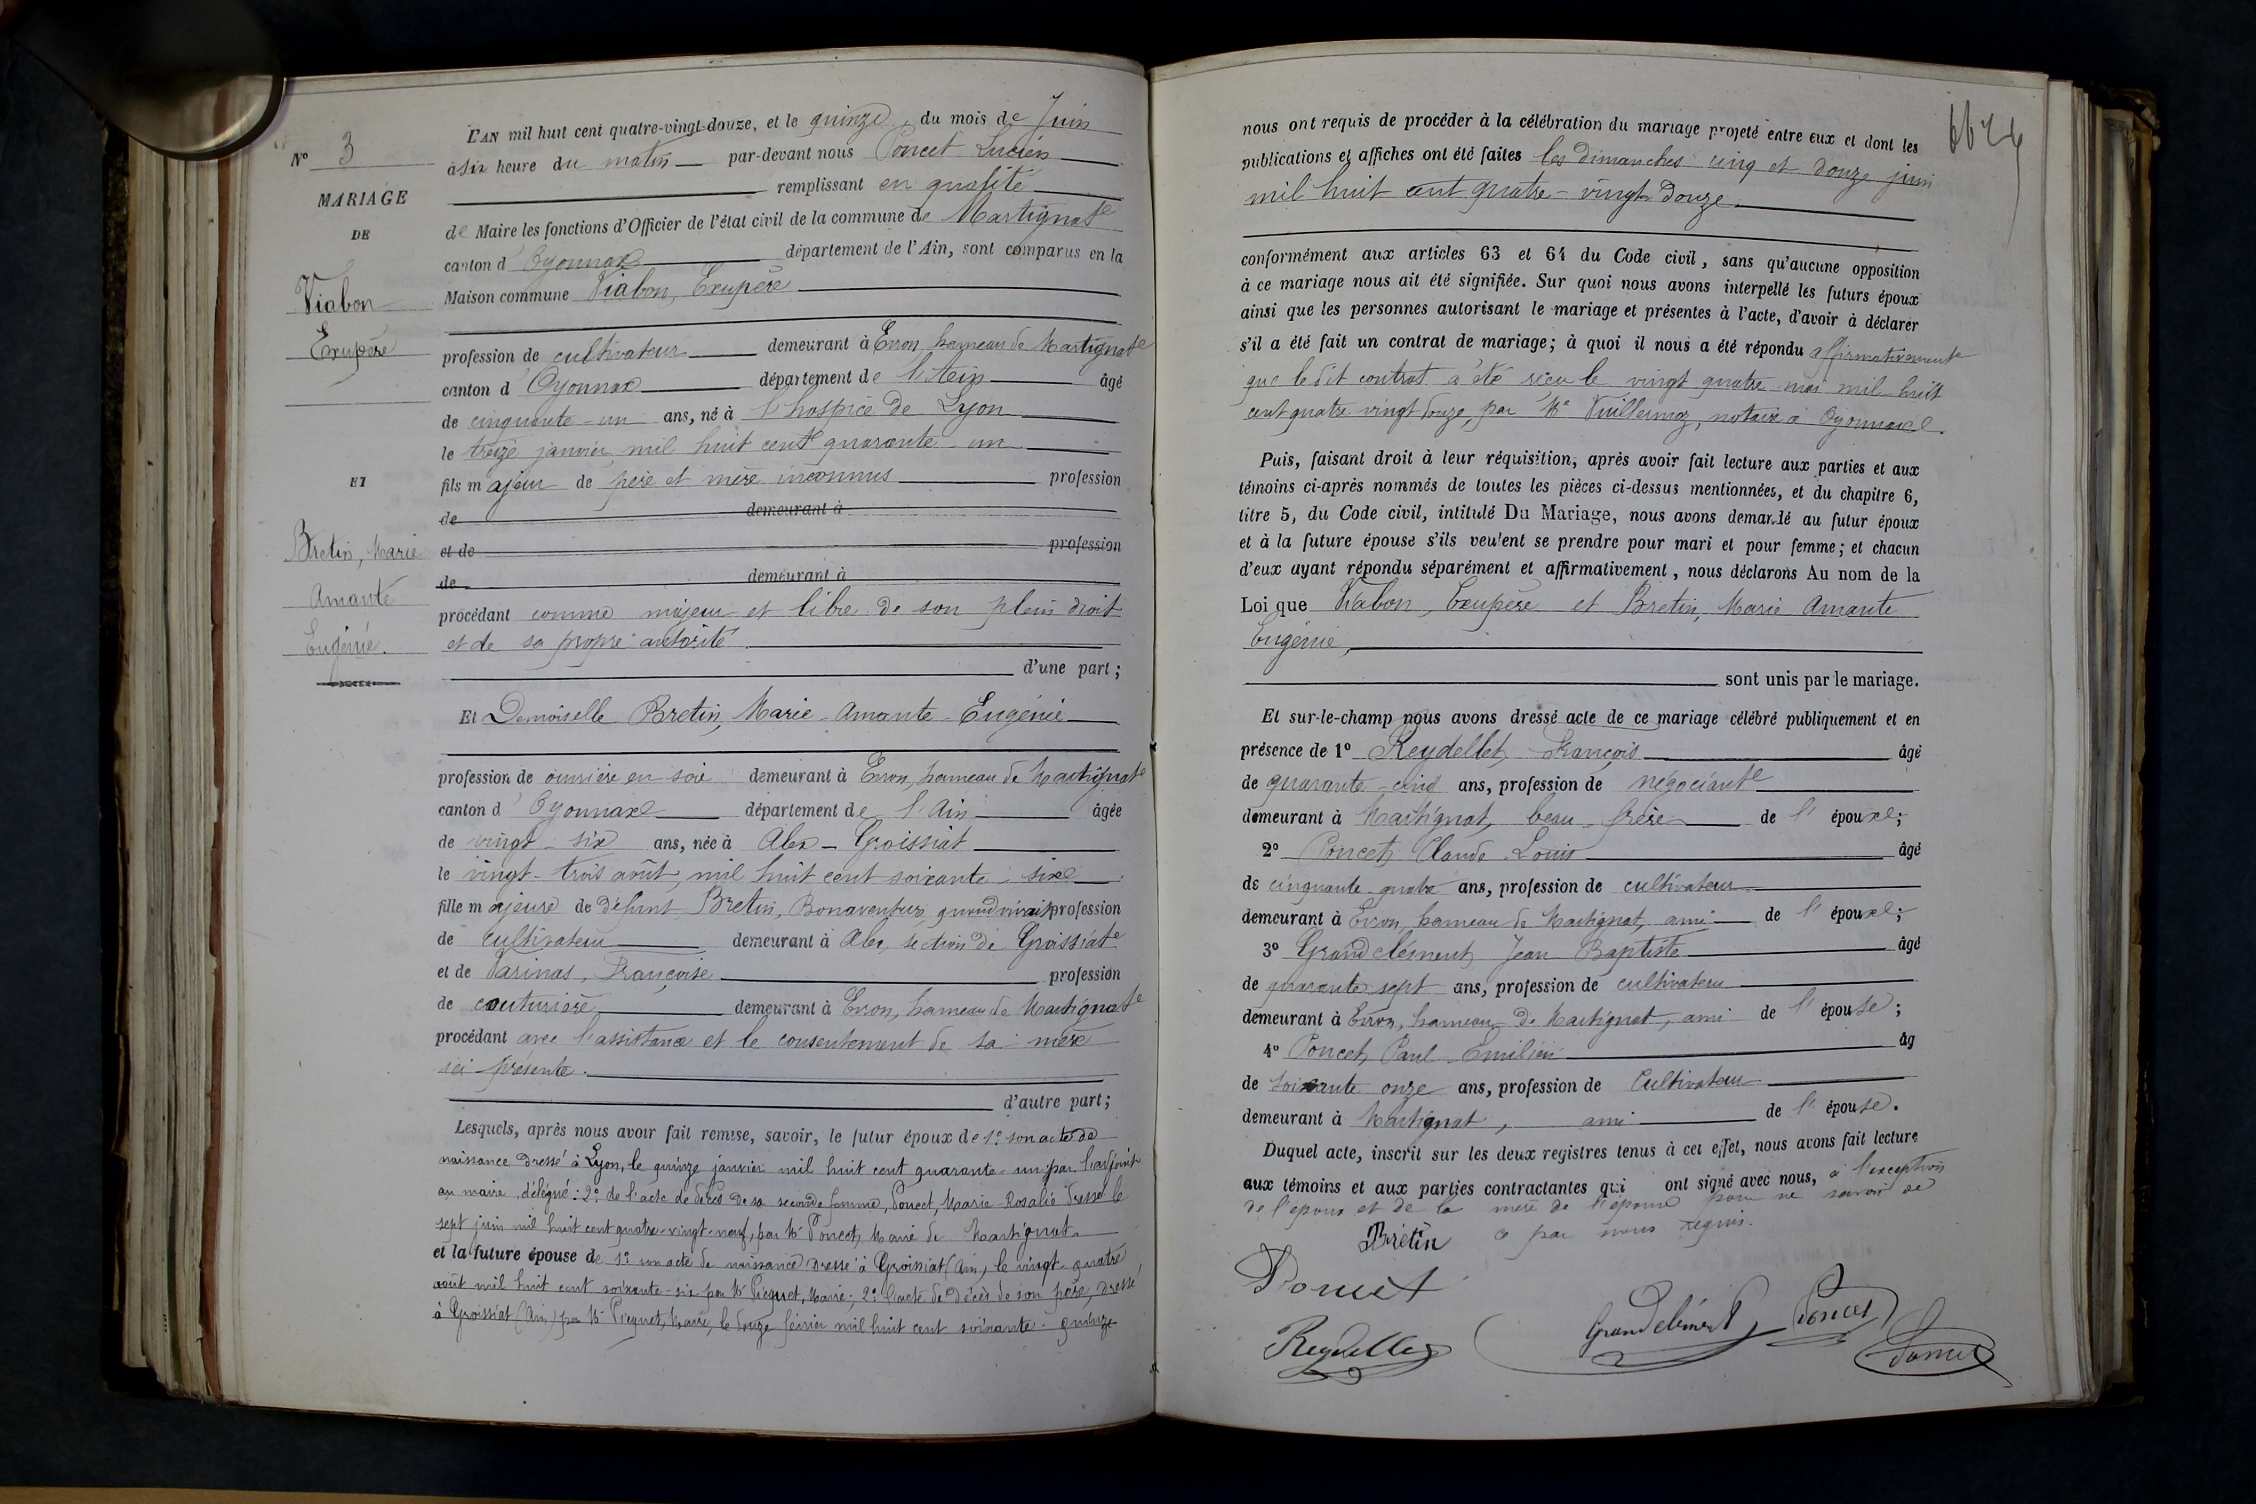 N° 3
MARIAGE
DE
Viabon
Exupère
ET
Bretin, Marie
Amante
Eugénie.
L'AN mil huit cent quatre-vingt-douze, et le quinze, du mois de Juin
à six heure du matin par-devant nous Poncet Lucien
remplissant en qualité
de Maire les fonctions d'Officier de l'état civil de la commune de Martignat
canton d'Oyonnax département de l'Ain, sont comparus en la
Maison commune Viabon, Exupère
profession de cultivateur demeurant à Evron, hameau de Martignat
canton d'Oyonnax département de l'Ain âgé
de cinquante-un ans, né à l'hospice de Lyon
le treize janvier mil huit cent quarante-un
fils majeur de père et mère inconnus profession
de demeurant à
et de profession
de demeurant à
procédant comme majeur et libre de son plein droit
et de sa propre autorité
d'une part;
Et Demoiselle Bretin, Marie-Amante-Eugénie
profession de ouvrière en soie demeurant à Evron, hameau de Martignat
canton d'Oyonnax département de l'Ain âgée
de vingt-six ans, née à Alex-Groissiat
le vingt-trois août, mil huit cent soixante-six
fille majeure de défunt Bretin, Bonaventure, quand vivait profession
de cultivateur demeurant à Alex, section de Groissiat
et de Varinas, Françoise profession
de couturière demeurant à Evron, hameau de Martignat
procédant avec l'assistance et le consentement de sa mère
ici présente.
d'autre part;
Lesquels, après nous avoir fait remise, savoir, le futur époux de 1° son acte de
naissance dressé à Lyon, le quinze janvier mil huit cent quarante-un par l'adjoint
au maire, délégué; 2° de l'acte de décès de sa seconde femme, Poncet, Marie-Rosalie dressé le
sept juin mil huit cent quatre-vingt-neuf, par Mr Poncet, Maire de Martignat
et la future épouse de 1° son acte de naissance dressé à Groissiat (Ain), le vingt-quatre
août mil huit cent soixante-six par Mr Picquet, Maire; 2° l'acte de décès de son père, dressé
à Groissiat (Ain) par Mr Picquet, Maire, le douze février mil huit cent soixante-quinze
nous ont requis de procéder à la célébration du mariage projeté entre eux et dont les
publications et affiches ont été faites les dimanches cinq et douze juin
mil huit cent quatre-vingt douze.
conformément aux articles 63 et 64 du Code civil, sans qu'aucune opposition
à ce mariage nous ait été signifiée. Sur quoi nous avons interpellé les futurs époux
ainsi que les personnes autorisant le mariage et présentes à l'acte, d'avoir à déclarer
s'il a été fait un contrat de mariage; à quoi il nous a été répondu affirmativement
que le dit contrat a été reçu le vingt quatre mai mil huit
cent quatre vingt douze, par Me Vuillermoz, notaire à Oyonnax.
Puis, faisant droit à leur réquisition, après avoir fait lecture aux parties et aux
témoins ci-après nommés de toutes les pièces ci-dessus mentionnées, et du chapitre 6,
titre 5, du Code civil, intitulé Du Mariage, nous avons demandé au futur époux
et à la future épouse s'ils veulent se prendre pour mari et pour femme; et chacun
d'eux ayant répondu séparément et affirmativement, nous déclarons Au nom de la
Loi que Viabon, Exupère et Bretin, Marie Amante
Eugénie,
sont unis par le mariage.
Et sur-le-champ nous avons dressé acte de ce mariage célébré publiquement et en
présence de 1° Reydellet, François âgé
de quarante-cinq ans, profession de négociant
demeurant à Martignat, beau-frère de l'époux;
2° Poncet, Claude Louis âgé
de cinquante-quatre ans, profession de cultivateur
demeurant à Evron, hameau de Martignat, ami de l'époux;
3° Grandclément, Jean Baptiste âgé
de quarante-sept ans, profession de cultivateur
demeurant à Evron, hameau de Martignat, ami de l'épouse;
4° Poncet, Paul-Emilien âg
de soixante onze ans, profession de Cultivateur
demeurant à Martignat, ami de l'épouse.
Duquel acte, inscrit sur les deux registres tenus à cet effet, nous avons fait lecture
aux témoins et aux parties contractantes qui ont signé avec nous, à l'exception
de l'époux et de la mère de l'épouse pour ne savoir de
ce par nous requis.
Brétin
Poncet
Reydellet
Grandclément
Poncet
Poncet